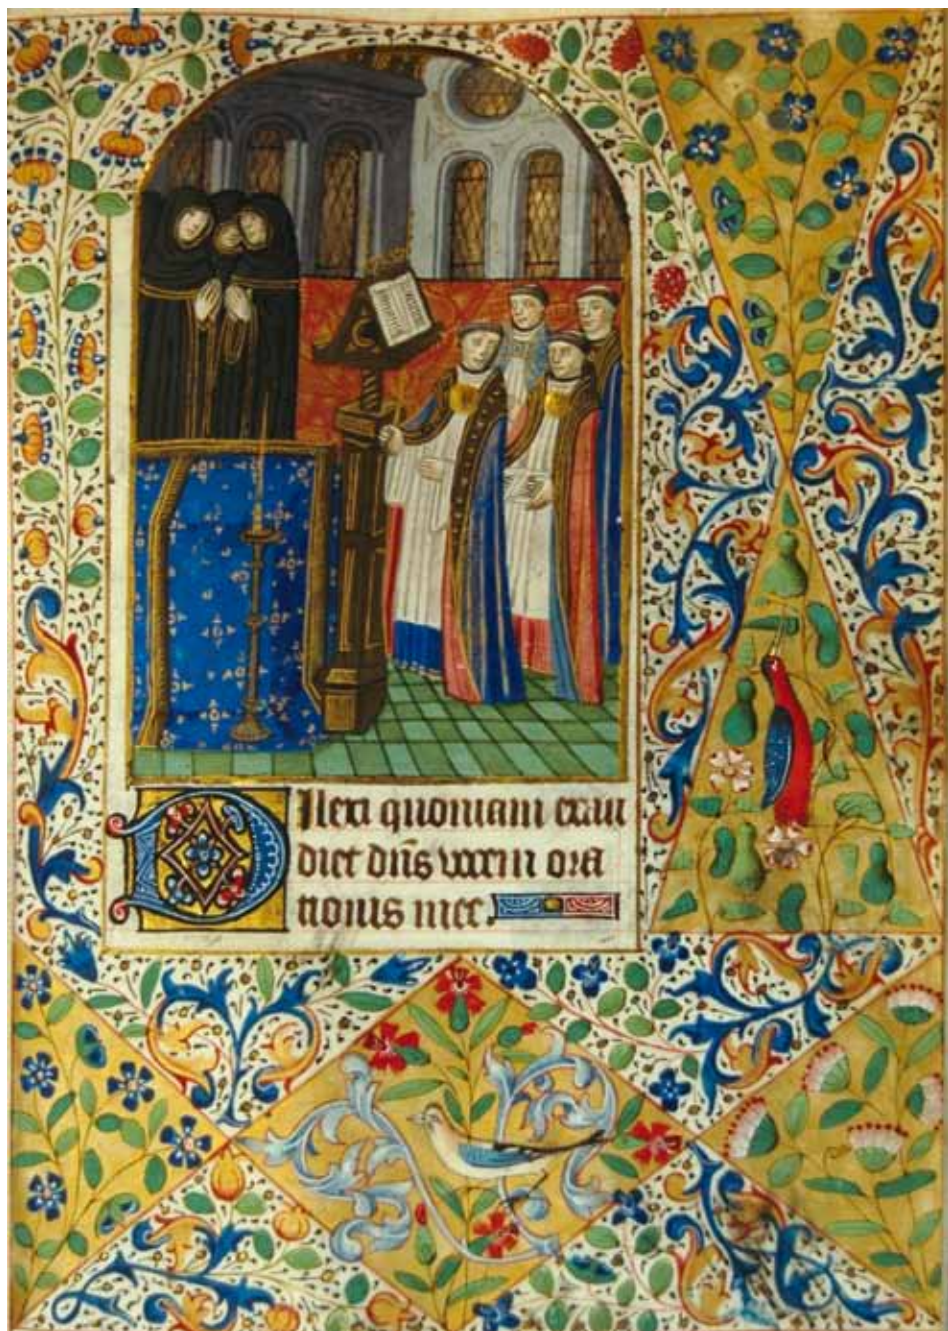 Dilexi quoniam exau
diet dn̄s vocem ora
tionis mee